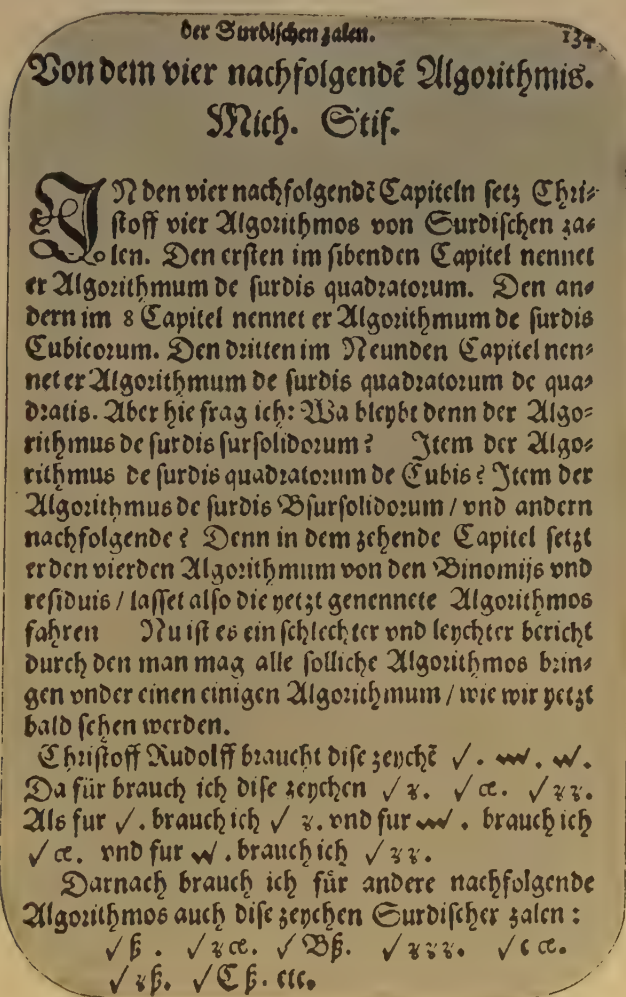 der Surdischen zalen. 134
Von dem vier nachfolgendē Algorithmis.
Mich. Stif.
IN den vier nachfolgendē Capiteln setz Chri⸗
stoff vier Algorithmos von Surdischen za⸗
len. Den ersten im sibenden Capitel nennet
er Algorithmum de surdis quadratorum. Den an⸗
dern im 8 Capitel nennet er Algorithmum de surdis
Cubicorum. Den dritten im Neunden Capitel nen⸗
net er Algorithmum de surdis quadratorum de qua⸗
dratis. Aber hie frag ich: Wa bleybt denn der Algo⸗
rithmus de surdis sursolidorum? Item der Algo⸗
rithmus de surdis quadratorum de Cubis? Item der
Algorithmus de surdis Bsursolidorum / vnd andern
nachfolgende? Denn in dem zehende Capitel setzt
er den vierden Algorithmum von den Binomijs vnd
residuis / lasset also die yetzt genennete Algorithmos
fahren Nu ist es ein schlechter vnd leychter bericht
durch den man mag alle solliche Algorithmos brin⸗
gen vnder einen einigen Algorithmum / wie wir yetzt
bald sehen werden.
Christoff Rudolff braucht dise zeychē √.
Da für brauch ich dise zeychen √ʒ. √cƶ. √ʒʒ.
Als fur √. brauch ich √ʒ. vnd fur . brauch ich
√cƶ. vnd fur . brauch ich √ʒʒ.
Darnach brauch ich für andere nachfolgende
Algorithmos auch dise zeychen Surdischer zalen:
√ß. √ʒcƶ. √Bß. √ʒʒʒ. √ccƶ.
√ʒß. √Cß. etc.